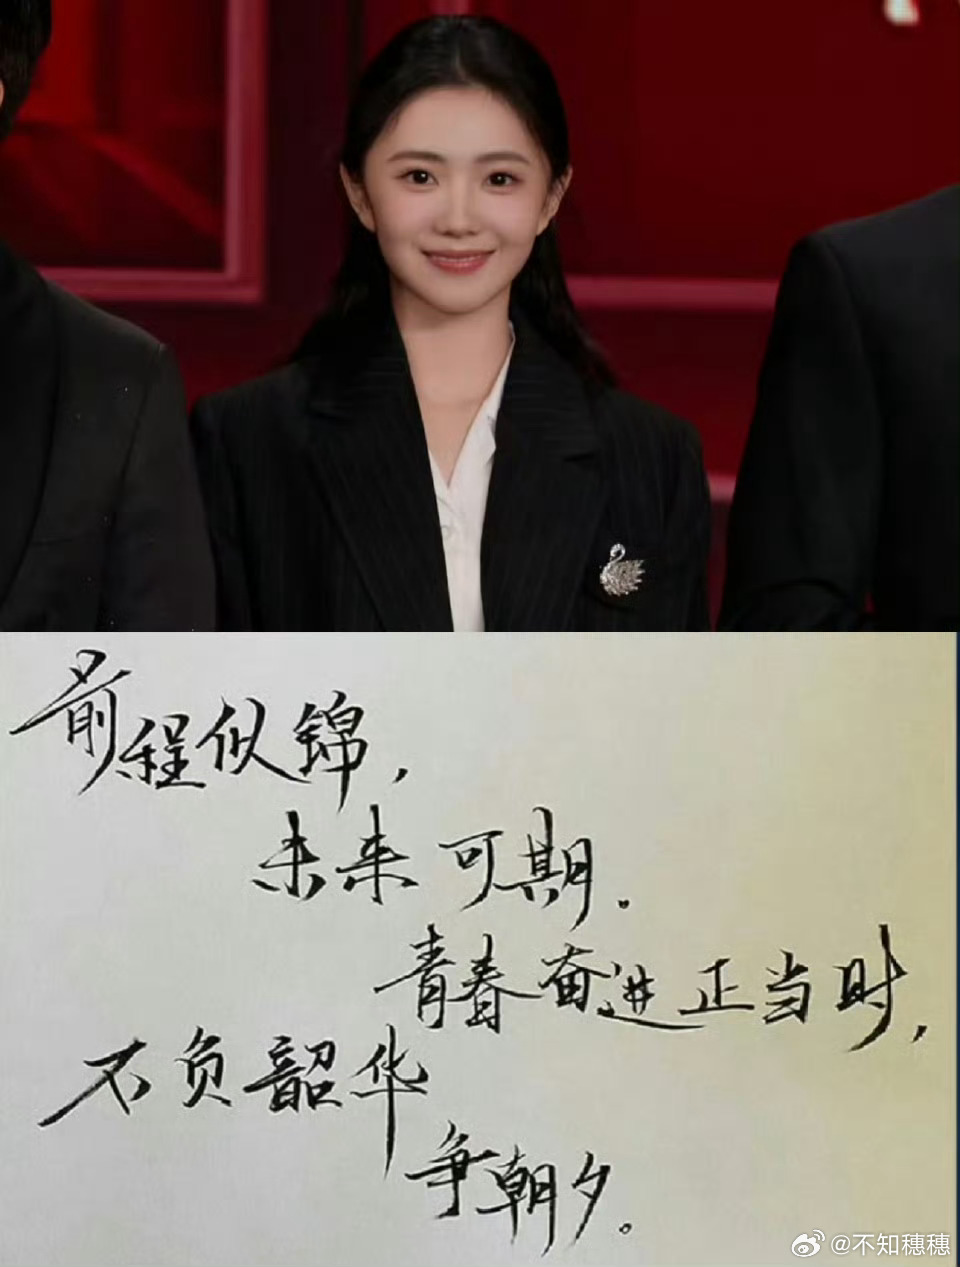 前程似锦，
未来可期.
青春奋进正当时，
不负韶华
争朝夕。
@不知穗穗